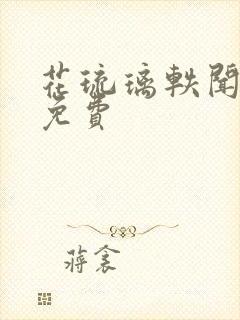 花琉璃軼聞
免費
蔣衾